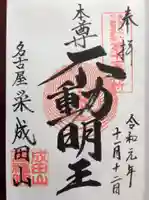 奉拝
令和元年
十一月十二日
本尊
不動明王
名古屋栄成田山